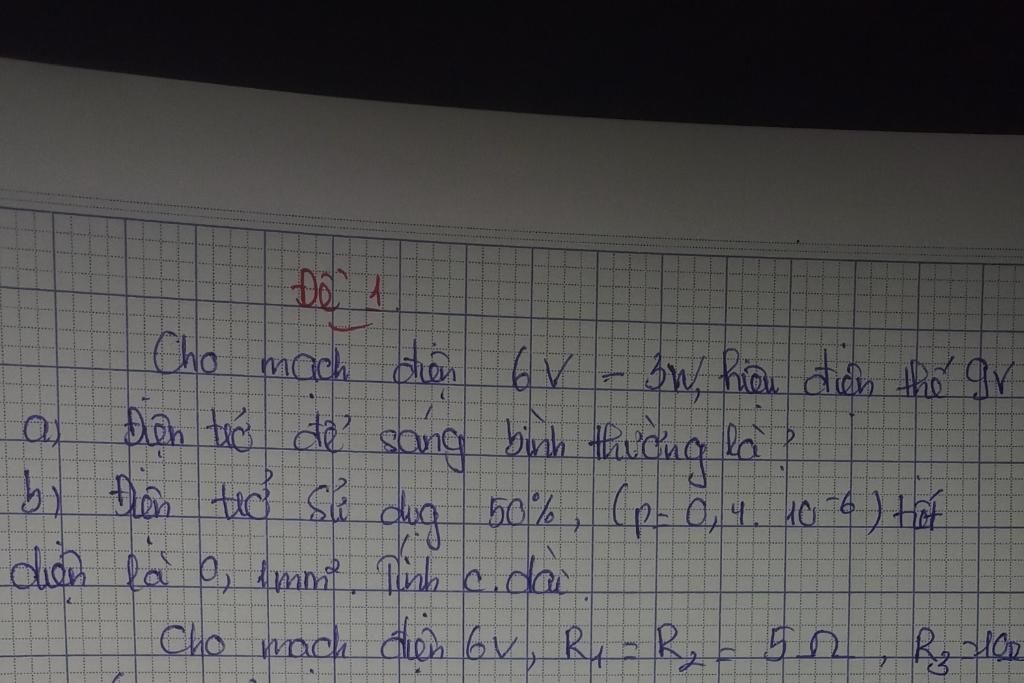 Đề 1
Cho mạch điện 6V - 3W, hiệu điện thế 9V
a) Điện trở để sáng bình thường là?
b) Điện trở sử dụg 50%, (p = 0,4. 10⁻⁶) tiết
diện là 0, 1mm². Tính c.dài.
Cho mạch điện 6V, R₁ = R₂ = 5 Ω, R₃ = 10Ω